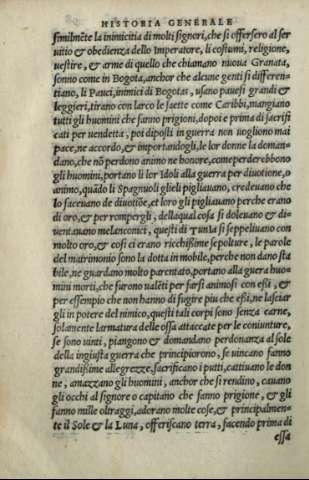 HISTORIA GENERALE
similmẽte la inimicitia di molti signori, che si offersero al ser
uitio & obedienza dello Imperatore, li costumi, religione,
uestire, & arme di quello che chiamano nuoua Granata,
sonno come in Bogota, anchor che alcune genti si differen-
tiano, li Pauci, inimici di Bogotas, usano pauesi grandi &
leggieri, tirano con larco le saette come Caribbi, mangiano
tutti gli huomini che fanno prigioni, dopoi e prima di sacrifi
cati per vendetta, poi diposti in guerra non uogliono mai
pace, ne accordo, & importandogli, le lor donne la doman-
dano, che nõ perdono animo ne honore, come perderebbono
gli huomini, portano li lor Idoli alla guerra per diuotione, o
animo, quãdo li Spagnuoli glieli pigliauano, credeuano che
lo faceuano de diuotiõe, et loro gli pigliauano perche erano
di oro, & per rompergli, della qual cosa si doleuano & di-
uentauano melanconici, questi di Tunia si sepeliuano con
molto oro, & cosi ci erano ricchissime sepolture, le parole
del matrimonio sono la dotta in mobile, perche non danno sta
bile, ne guardano molto parentato, portano alla guera huo-
mini morti, che furono ualẽti per farsi animosi con essi, &
per essempio che non hanno di fugire piu che essi, ne lasciar
gli in potere del nimico, questi tali corpi sono senza carne,
solamente larmatura delle ossa attaccate per le coniunture,
se sono uinti, piangono & domandano perdonanza al sole
della ingiusta guerra che principiorono, se uincano fanno
grandissime allegrezze, sacrificano i putti, cattiuano le don
ne, amazzano gli huomini, anchor che si rendino, cauano
gli occhi al signore o capitano che fanno prigione, & gli
fanno mille oltraggi, adorano molte cose, & principalmen-
te il Sole & la Luna, offeriscano terra, facendo prima di
essa